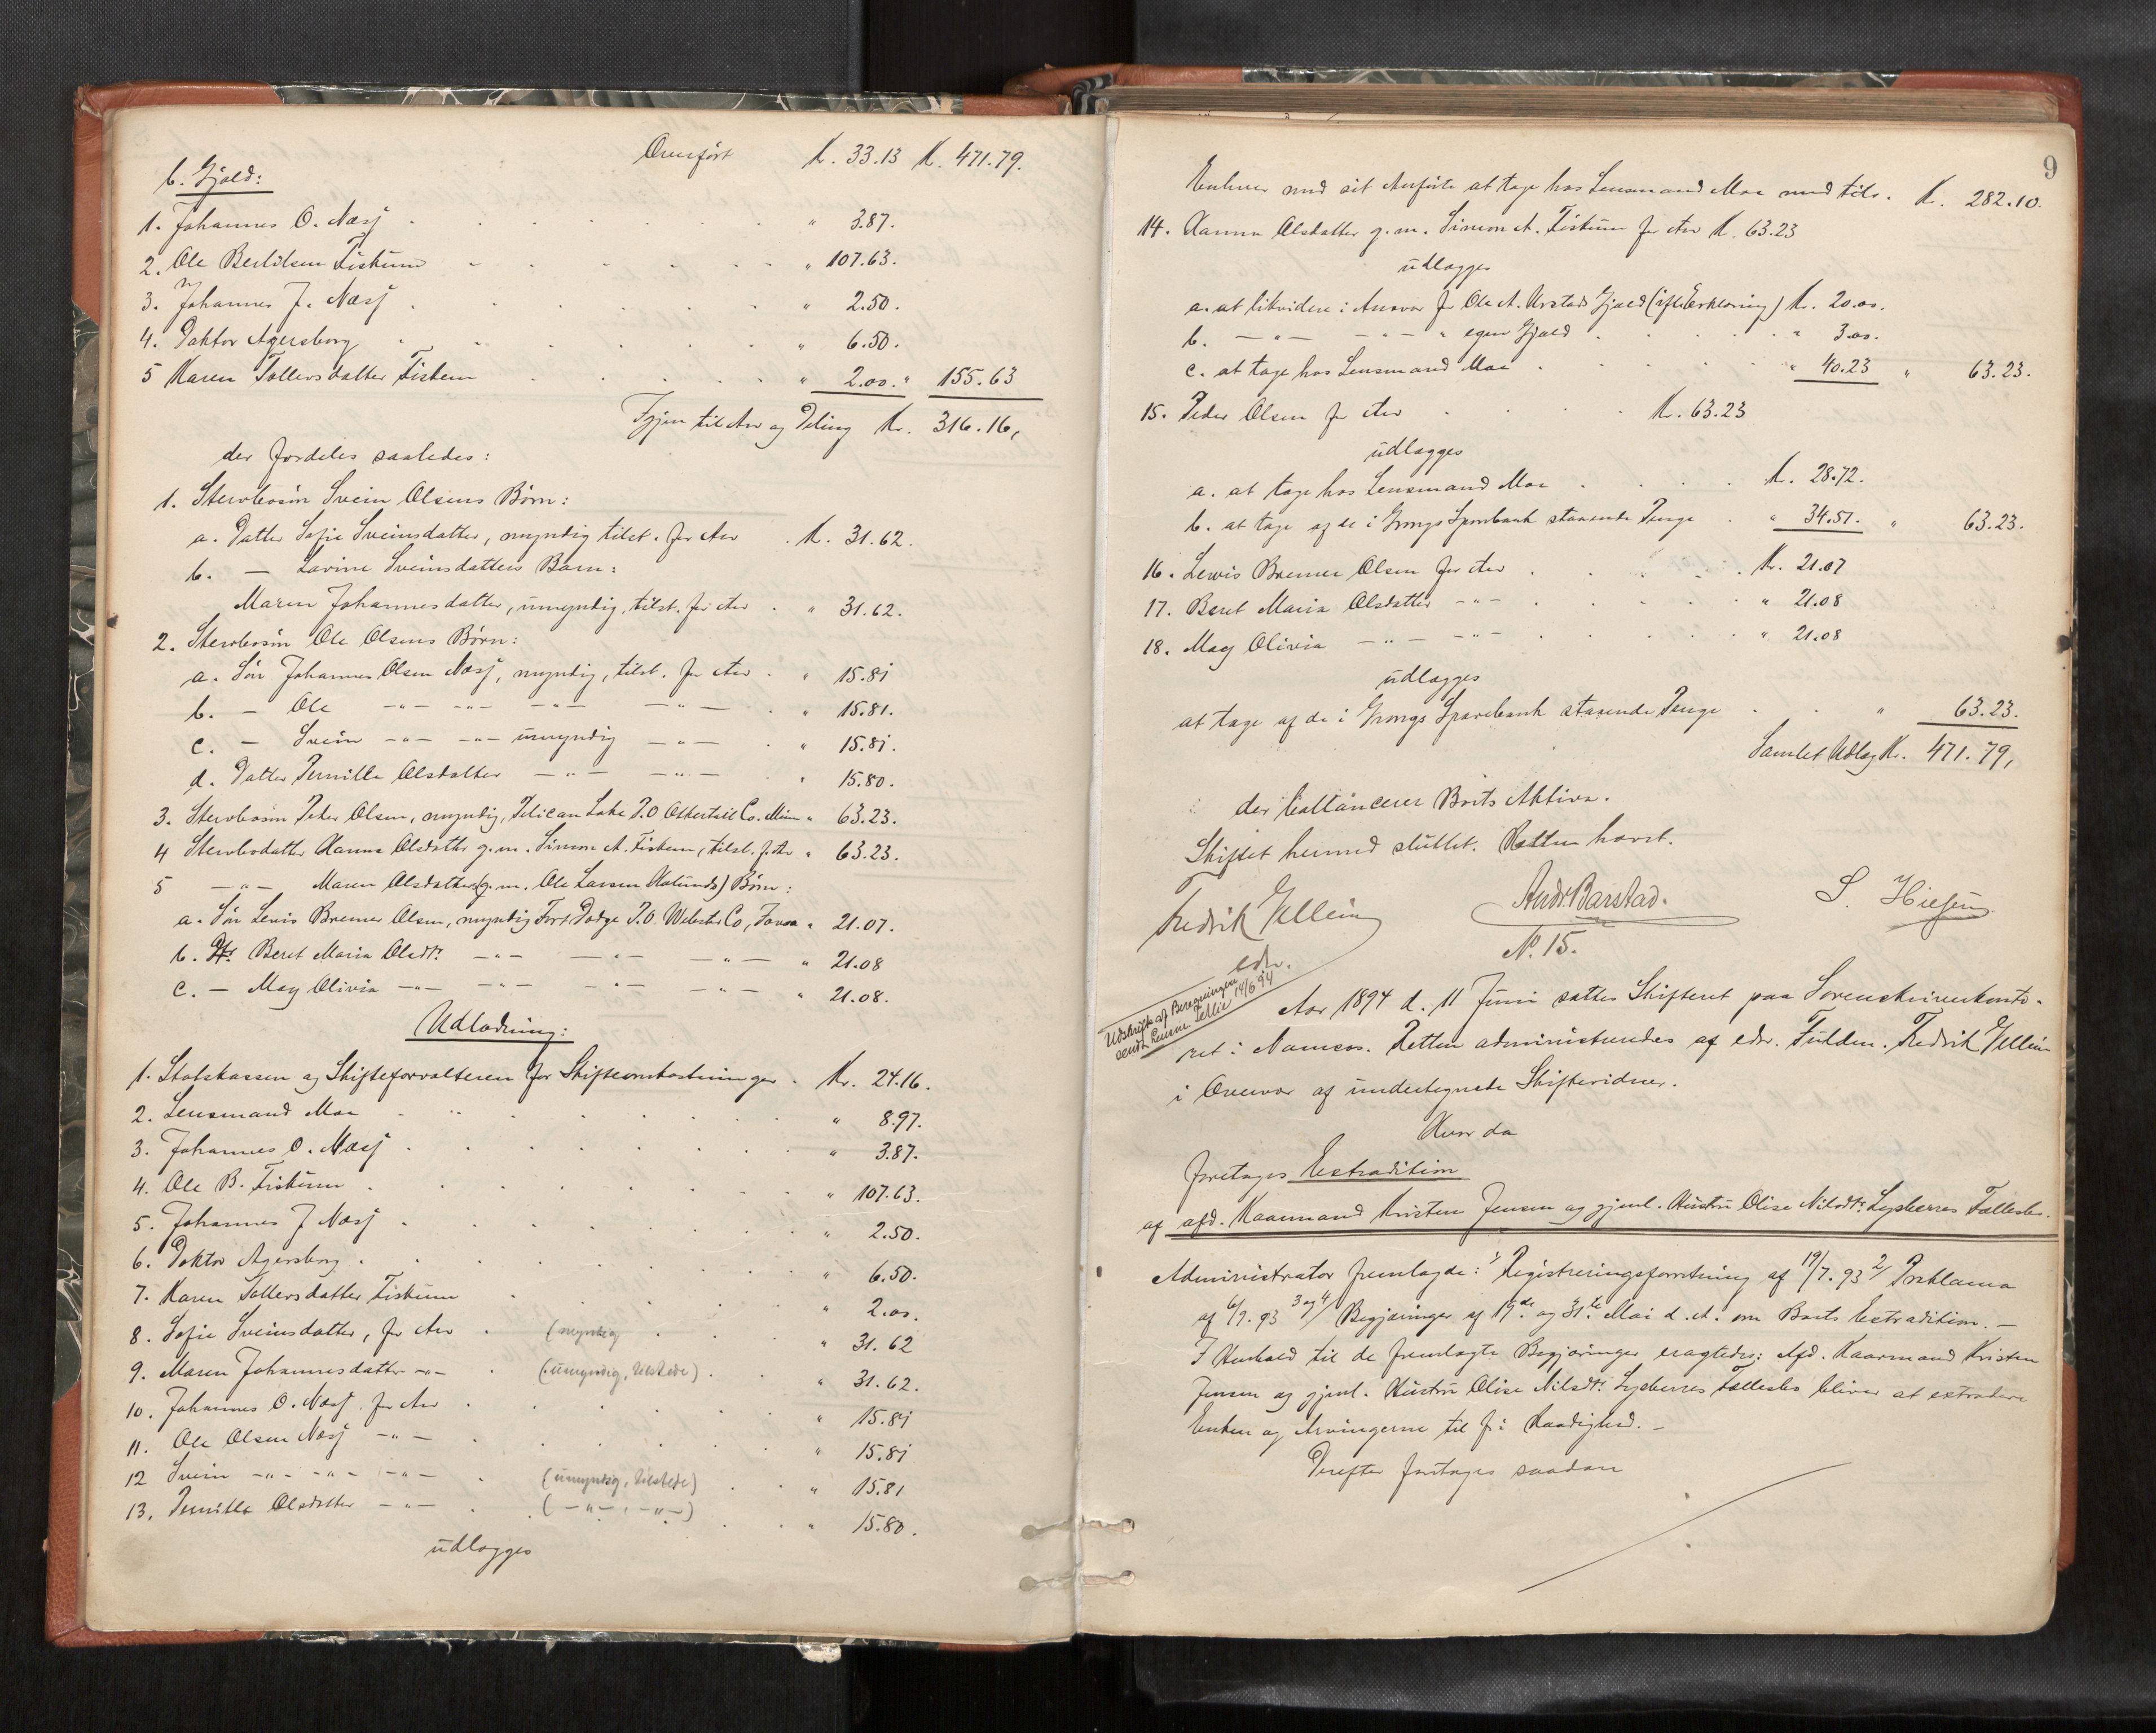 Overført K. 33.13 K. 471.79.
b. Gjæld:
1. Johannes O. Næsj . . . " 3.87.
2. Ole Bertilsen Fiskum - - - " 107.63.
3. Johannes J. Næsj . . . " 2.50.
4. Doktor Agersborg . . . " 6.50.
5 Karen Tollevsdatter Fiskum . . . " 2.00. " 155.63
Igjen til Arv og Deling Kr. 316.16,
der fordeles saaledes:
1. Stervbosøn Svein Olsens Børn:
a. Datter Sofie Sveinsdatter, myndig tilst. for Arv . K. 31.62.
b. — Lavine Sveinsdatters Barn:
Maren Johannesdatter, umyndig, tilst. for Arv . " 31.62.
2. Stervbosøn Ole Olsens Børn:
a. Søn Johannes Olsen Næsj, myndig, tilst. for Arv . " 15.81
b. - Ole -"- -"- -"- -"- . " 15.81.
c. - Svein -"- -"- umyndig -"- . " 15.81.
d. Datter Pernille Olsdatter -"- -"- . " 15.80.
3. Stervbosøn Peder Olsen, myndig, Pelican Lake P.O Ottertail Co. Minn " 63.23.
4 Stervbodatter Hanna Olsdatter g.m. Simon A. Fiskum, tilst. f. Arv " 63.23.
5 -"- Maren Olsdatters (g.m. Ole Larsen Aalunds) Børn:
a. Søn Lewis Bremer Olsen, myndig Fort Dodge P.O. Webster Co, Iowa " 21.07.
b. Dtr. Beret Maria Olsdtr. -"- -"- -"- " 21.08
c. — May Olivia -"- -"- -"- -"- " 21.08.
Udlodning:
1. Statskassen og Skifteforvalteren for Skifteomkostninger . Kr. 24.16.
2. Lensmand Moe - . . . " 8.97.
3. Johannes O. Næsj . . . " 3.87.
4. Ole B. Fiskum . . . " 107.63.
5. Johannes J Næsj . . . " 2.50.
6. Doktor Agersborg . . . " 6.50.
7. Karen Tollevsdatter Fiskum " 2.00.
8. Sofie Sveinsdatter, for Arv . (myndig . . " 31.62
9. Maren Johannesdatter -"- . (umyndig, tilstede) . " 31.62.
10. Johannes O. Næsj for Arv . . . " 15.81
11. Ole Olsen Næsj -"- . . . " 15.81
12 Svein -"- -"- -"- . (umyndig, tilstede) . " 15.81
13. Pernille Olsdatter -"- . (-"-, -"-) . " 15.80.
udlægges
9
Enhver med sit Anførte at tage hos Lensmand Moe med tils. K. 282.10.
14. Hanna Olsdatter g.m. Simon A. Fiskum for Arv K. 63.23
udlægges
a. at likvidere i Ansvar for Ole A. Urstads Gjæld (ifl. Erklæring) Kr. 20.00.
b. -"- -"- " egen Gjæld . . . " 3.00.
c. at tage hos Lensmand Moe . . . " 40.23 " 63.23.
15. Peder Olsen for Arv . . . K. 63.23
udlægges
a. at tage hos Lensmand Moe . . . K. 28.72.
b. at tage af de i Grongs Sparebank staaende Penge . " 34.51. " 63.23.
16. Lewis Bremer Olsen for Arv . . . K. 21.07
17. Beret Maria Olsdatter -"- . . . " 21.08
18. May Olivia -"- -"- . . . " 21.08
udlægges
at tage af de i Grongs Sparebank staaende Penge . . " 63.23.
Samlet Udlæg K. 471.79,
der ballancerer Boets Aktiva.
Skiftet hermed sluttet. Retten hævet.
Fredrik Vellein Andr. Barstad. S.
edv.
N° 15.
Udskrift af Beregningen
sendt Lensm. 14/6 94
Aar 1894 d. 11 Juni sattes Skifteret paa Sorenskriverkonto-
ret i Namsos. Retten administreredes af edv. Fuldm. Fredrik Vellein
i Overvær af undertegnede Skiftevidner.
Hvor da
foretoges Extradition
af afd. Kaarmand Kristen Jensen og gjenl. Hustru Olise Nilsdtr. Lysberres Fællesbo.
Administrator fremlagde: 1/ Registreringsforretning af 19/7. 93 2/ Proklama
af 6/9. 93 3 og 4/ Begjæringer af 19de og 31te Mai d. A. om Boets Extradition. —
I Henhold til de fremlagte Begjæringer eragtedes: Afd. Kaarmand Kristen
Jensen og gjenl. Hustru Olise Nilsdtr. Lysberres Fællesbo bliver at extradere
Enken og Arvingerne til fri Raadighed. —
Derefter foretoges saadan